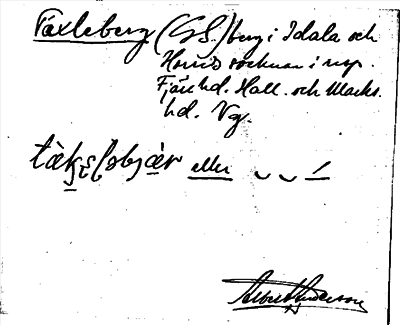 Täxleberg (GS.) berg i Idala och
Horreds socknar i resp.
Fjäre hd. Hall. och Marks
hd. Vg.
eller ⏑ ⏑ ´
Albert Anderson